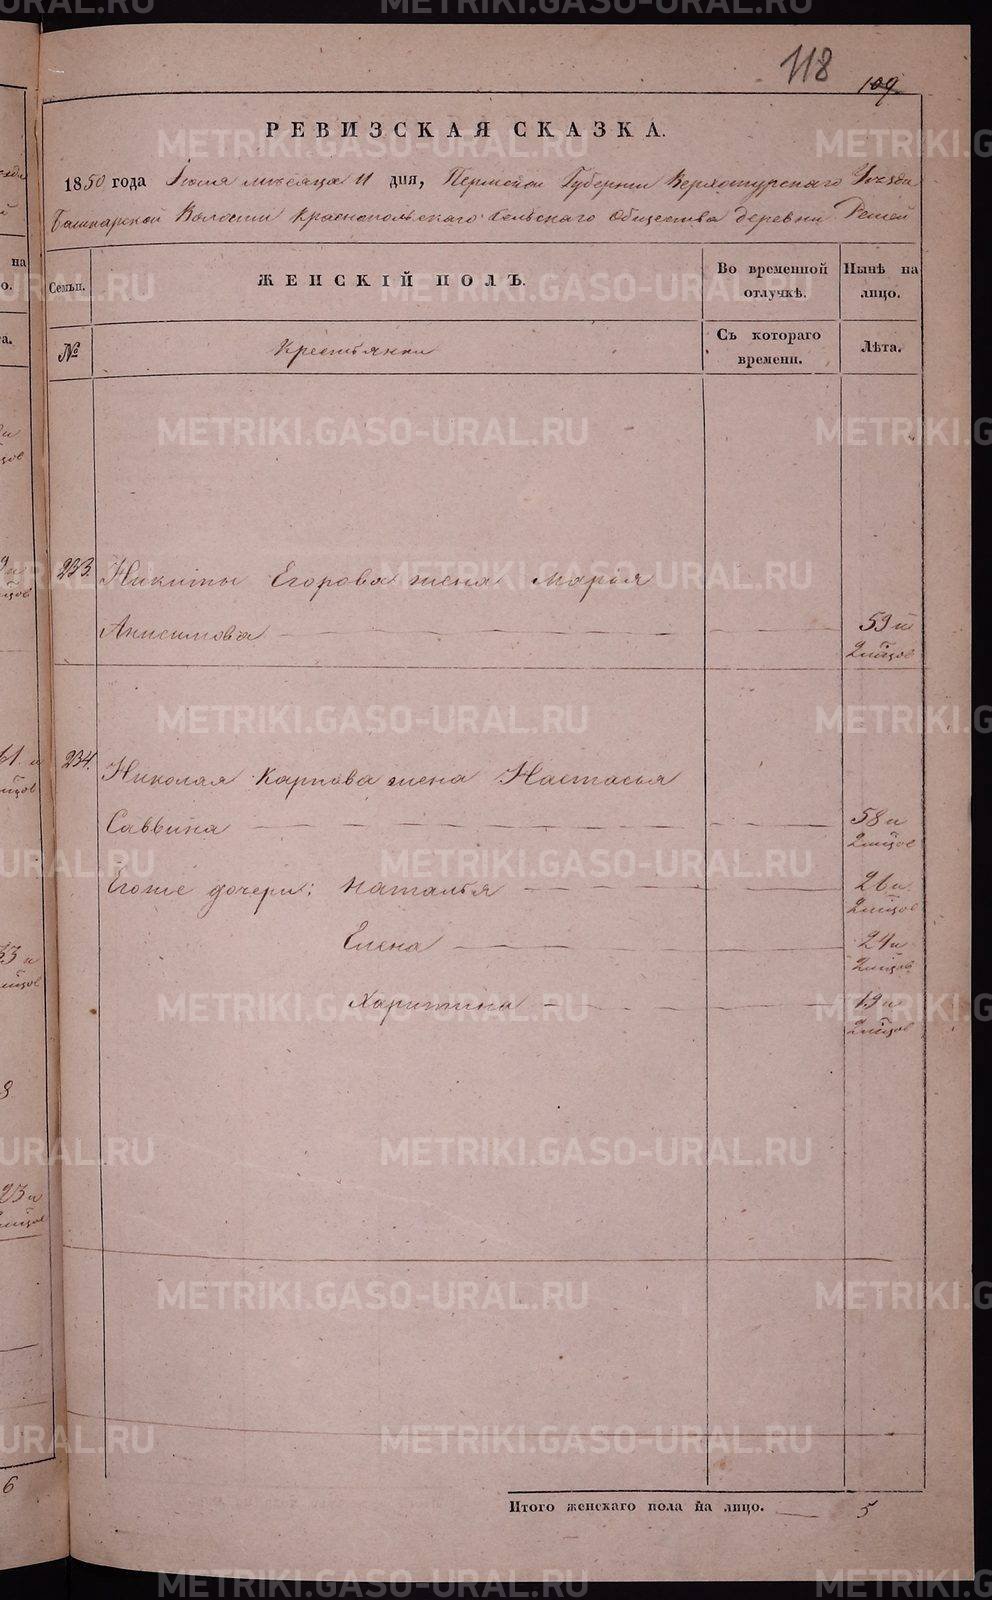 118
109
РЕВИЗСКАЯ СКАЗКА.
1850 года Іюля месяца 11 дня, Пермской Губерніи Верхотурскаго Уѣзда
Башкарской Волости Краснопольскаго Сельскаго Общества деревни
Семьи. ЖЕНСКІЙ ПОЛЪ. Во временной отлучкѣ. Нынѣ на лицо.
№ Крестьянки Съ котораго времени. Лѣта.
233. Никиты Егорова жена Марья
Анисимова 59 и
2 мѣцов
234. Николая Карпова жена Настасья
Саввина 58 и
2 мѣцов
Егоже дочери: Наталья 26 и
2 мѣцов
Елена 24 и
2 мѣцов
Харитина 19 и
2 мѣцов
Итого женскаго пола на лицо. 5
METRIKI.GASO-URAL.RU